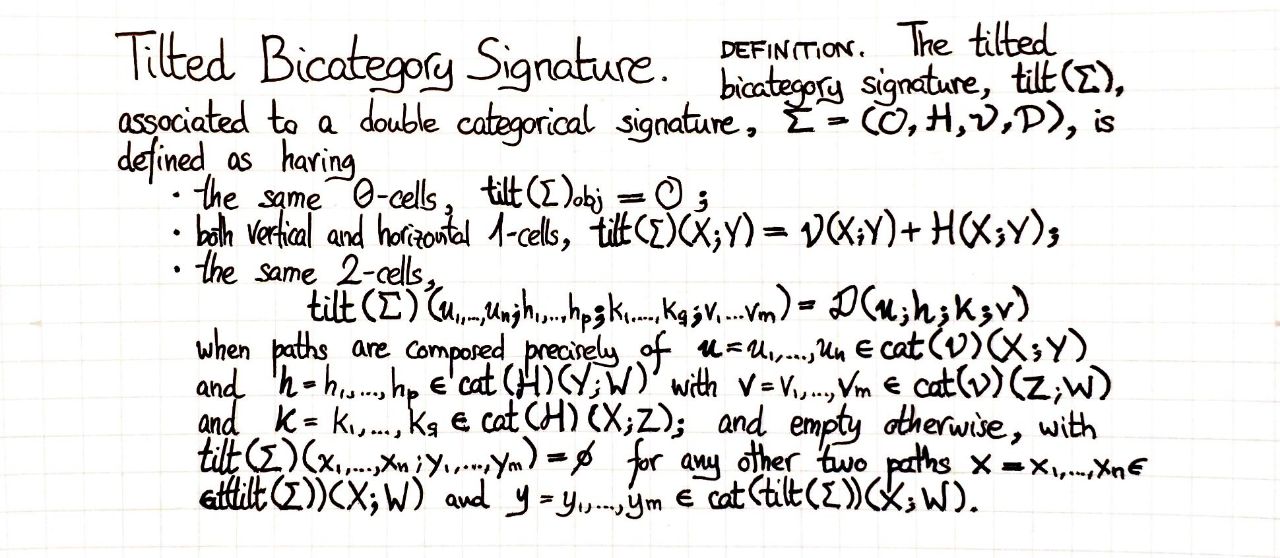 Tilted Bicategory Signature. DEFINITION. The tilted
bicategory signature, tilt(Σ),
associated to a double categorical signature, Σ = (O, H, V, D), is
defined as having
· the same 0-cells, tilt(Σ)obj = O;
· both vertical and horizontal 1-cells, tilt(Σ)(X;Y) = V(X;Y) + H(X;Y);
· the same 2-cells,
tilt(Σ)(u₁,...,uₙ;h₁,...,hₚ;k₁,...,k_q;v₁...vₘ) = D(u;h;k;v)
when paths are composed precisely of u=u₁,...,uₙ ∈ cat(V)(X;Y)
and h=h₁,...,hₚ ∈ cat(H)(Y;W) with v=v₁,...,vₘ ∈ cat(V)(Z;W)
and k = k₁,...,k_q ∈ cat(H)(X;Z); and empty otherwise, with
tilt(Σ)(x₁,...,xₙ;y₁,...,yₘ) = ∅ for any other two paths x = x₁,...,xₙ ∈
tilt(Σ))(X;W) and y = y₁,...,yₘ ∈ cat(tilt(Σ))(X;W).